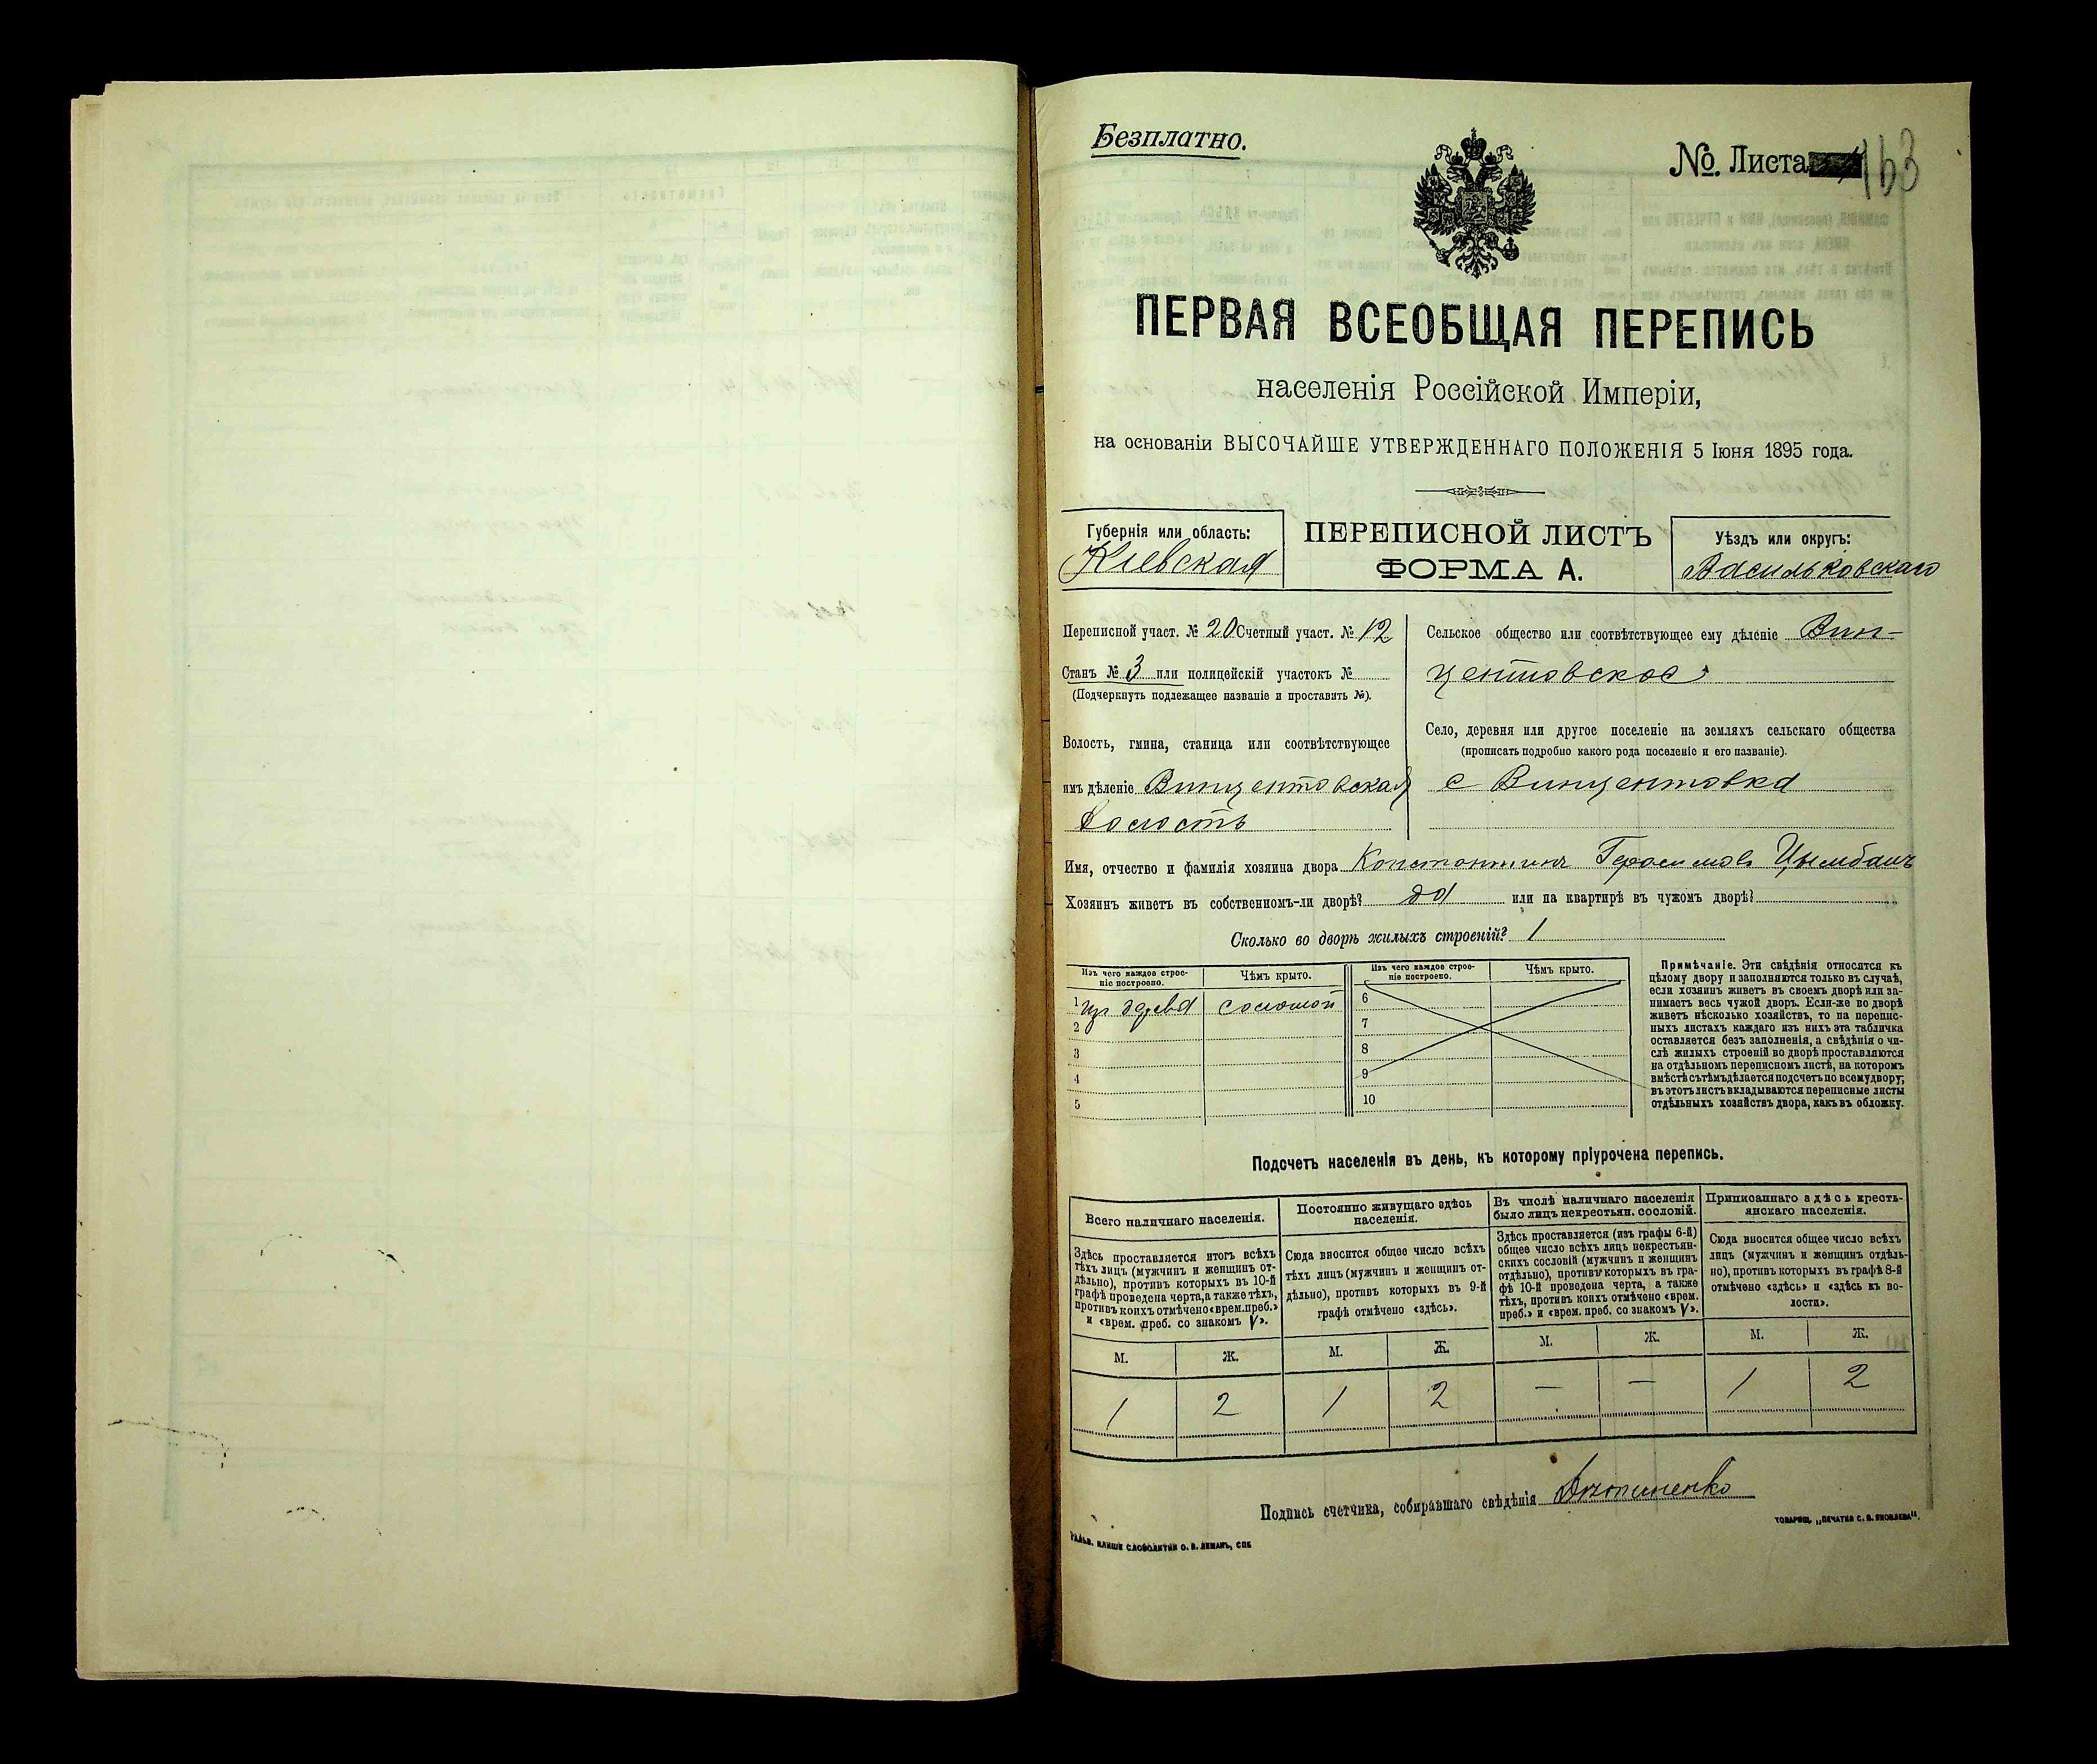 Безплатно.
№. Листа 163
ПЕРВАЯ ВСЕОБЩАЯ ПЕРЕПИСЬ
населенія Россійской Имперіи,
на основаніи ВЫСОЧАЙШЕ УТВЕРЖДЕННАГО ПОЛОЖЕНІЯ 5 Іюня 1895 года.
Губернія или область:
Кіевская
ПЕРЕПИСНОЙ ЛИСТЪ
ФОРМА А.
Уѣздъ или округъ:
Васильковскаго
Переписной участ. № 20 Счетный участ. № 12
Станъ № 3 или полицейскій участокъ №
(Подчеркнуть подлежащее названіе и проставить №).
Волость, гмина, станица или соотвѣтствующее
имъ дѣленіе Винцентовская
Волость
Сельское общество или соотвѣтствующее ему дѣленіе Вин-
центовское
Село, деревня или другое поселеніе на земляхъ сельскаго общества
(прописать подробно какого рода поселеніе и его названіе).
с Винцентовка
Имя, отчество и фамилія хозяина двора Константинъ Герасимовъ Цымбалъ
Хозяинъ живетъ въ собственномъ-ли дворѣ? да или на квартирѣ въ чужомъ дворѣ?
Сколько во дворѣ жилыхъ строеній? 1
Изъ чего каждое строе-
ніе построено.
Чѣмъ крыто.
Изъ чего каждое строе-
ніе построено.
Чѣмъ крыто.
1 изъ древа соломой
2
3
4
5
6
7
8
9
10
Примѣчаніе. Эти свѣдѣнія относятся къ
цѣлому двору и заполняются только въ случаѣ,
если хозяинъ живетъ въ своемъ дворѣ или за-
нимаетъ весь чужой дворъ. Если-же во дворѣ
живетъ нѣсколько хозяйствъ, то на перепис-
ныхъ листахъ каждаго изъ нихъ эта табличка
оставляется безъ заполненія, а свѣдѣнія о чи-
слѣ жилыхъ строеній во дворѣ проставляются
на отдѣльномъ переписномъ листѣ, на которомъ
вмѣстѣ съ тѣмъ дѣлается подсчетъ по всему двору;
въ этотъ листъ вкладываются переписные листы
отдѣльныхъ хозяйствъ двора, какъ въ обложку.
Подсчетъ населенія въ день, къ которому пріурочена перепись.
Всего наличнаго населенія.
Здѣсь проставляется итогъ всѣхъ
тѣхъ лицъ (мужчинъ и женщинъ от-
дѣльно), противъ которыхъ въ 10-й
графѣ проведена черта, а также тѣхъ,
противъ коихъ отмѣчено «врем. преб.»
и «врем. преб. со знакомъ V».
Постоянно живущаго здѣсь
населенія.
Сюда вносится общее число всѣхъ
тѣхъ лицъ (мужчинъ и женщинъ от-
дѣльно), противъ которыхъ въ 9-й
графѣ отмѣчено «здѣсь».
Въ числѣ наличнаго населенія
было лицъ некрестьян. сословій.
Здѣсь проставляется (изъ графы 6-й)
общее число всѣхъ лицъ некрестьян-
скихъ сословій (мужчинъ и женщинъ
отдѣльно), противъ которыхъ въ гра-
фѣ 10-й проведена черта, а также
тѣхъ, противъ коихъ отмѣчено «врем.
преб.» и «врем. преб. со знакомъ V».
Приписаннаго здѣсь кресть-
янскаго населенія.
Сюда вносится общее число всѣхъ
лицъ (мужчинъ и женщинъ отдѣль-
но), противъ которыхъ въ графѣ 8-й
отмѣчено «здѣсь» и «здѣсь къ во-
лости».
М. Ж. М. Ж. М. Ж. М. Ж.
1 2 1 2 — — 1 2
Подпись счетчика, собиравшаго свѣдѣнія
КЛИШЕ СЛОВОЛИТНИ О. И. ЛЕМАНЪ, СПБ
ТОВАРИЩ. „ПЕЧАТНЯ С. П. ЯКОВЛЕВА“.